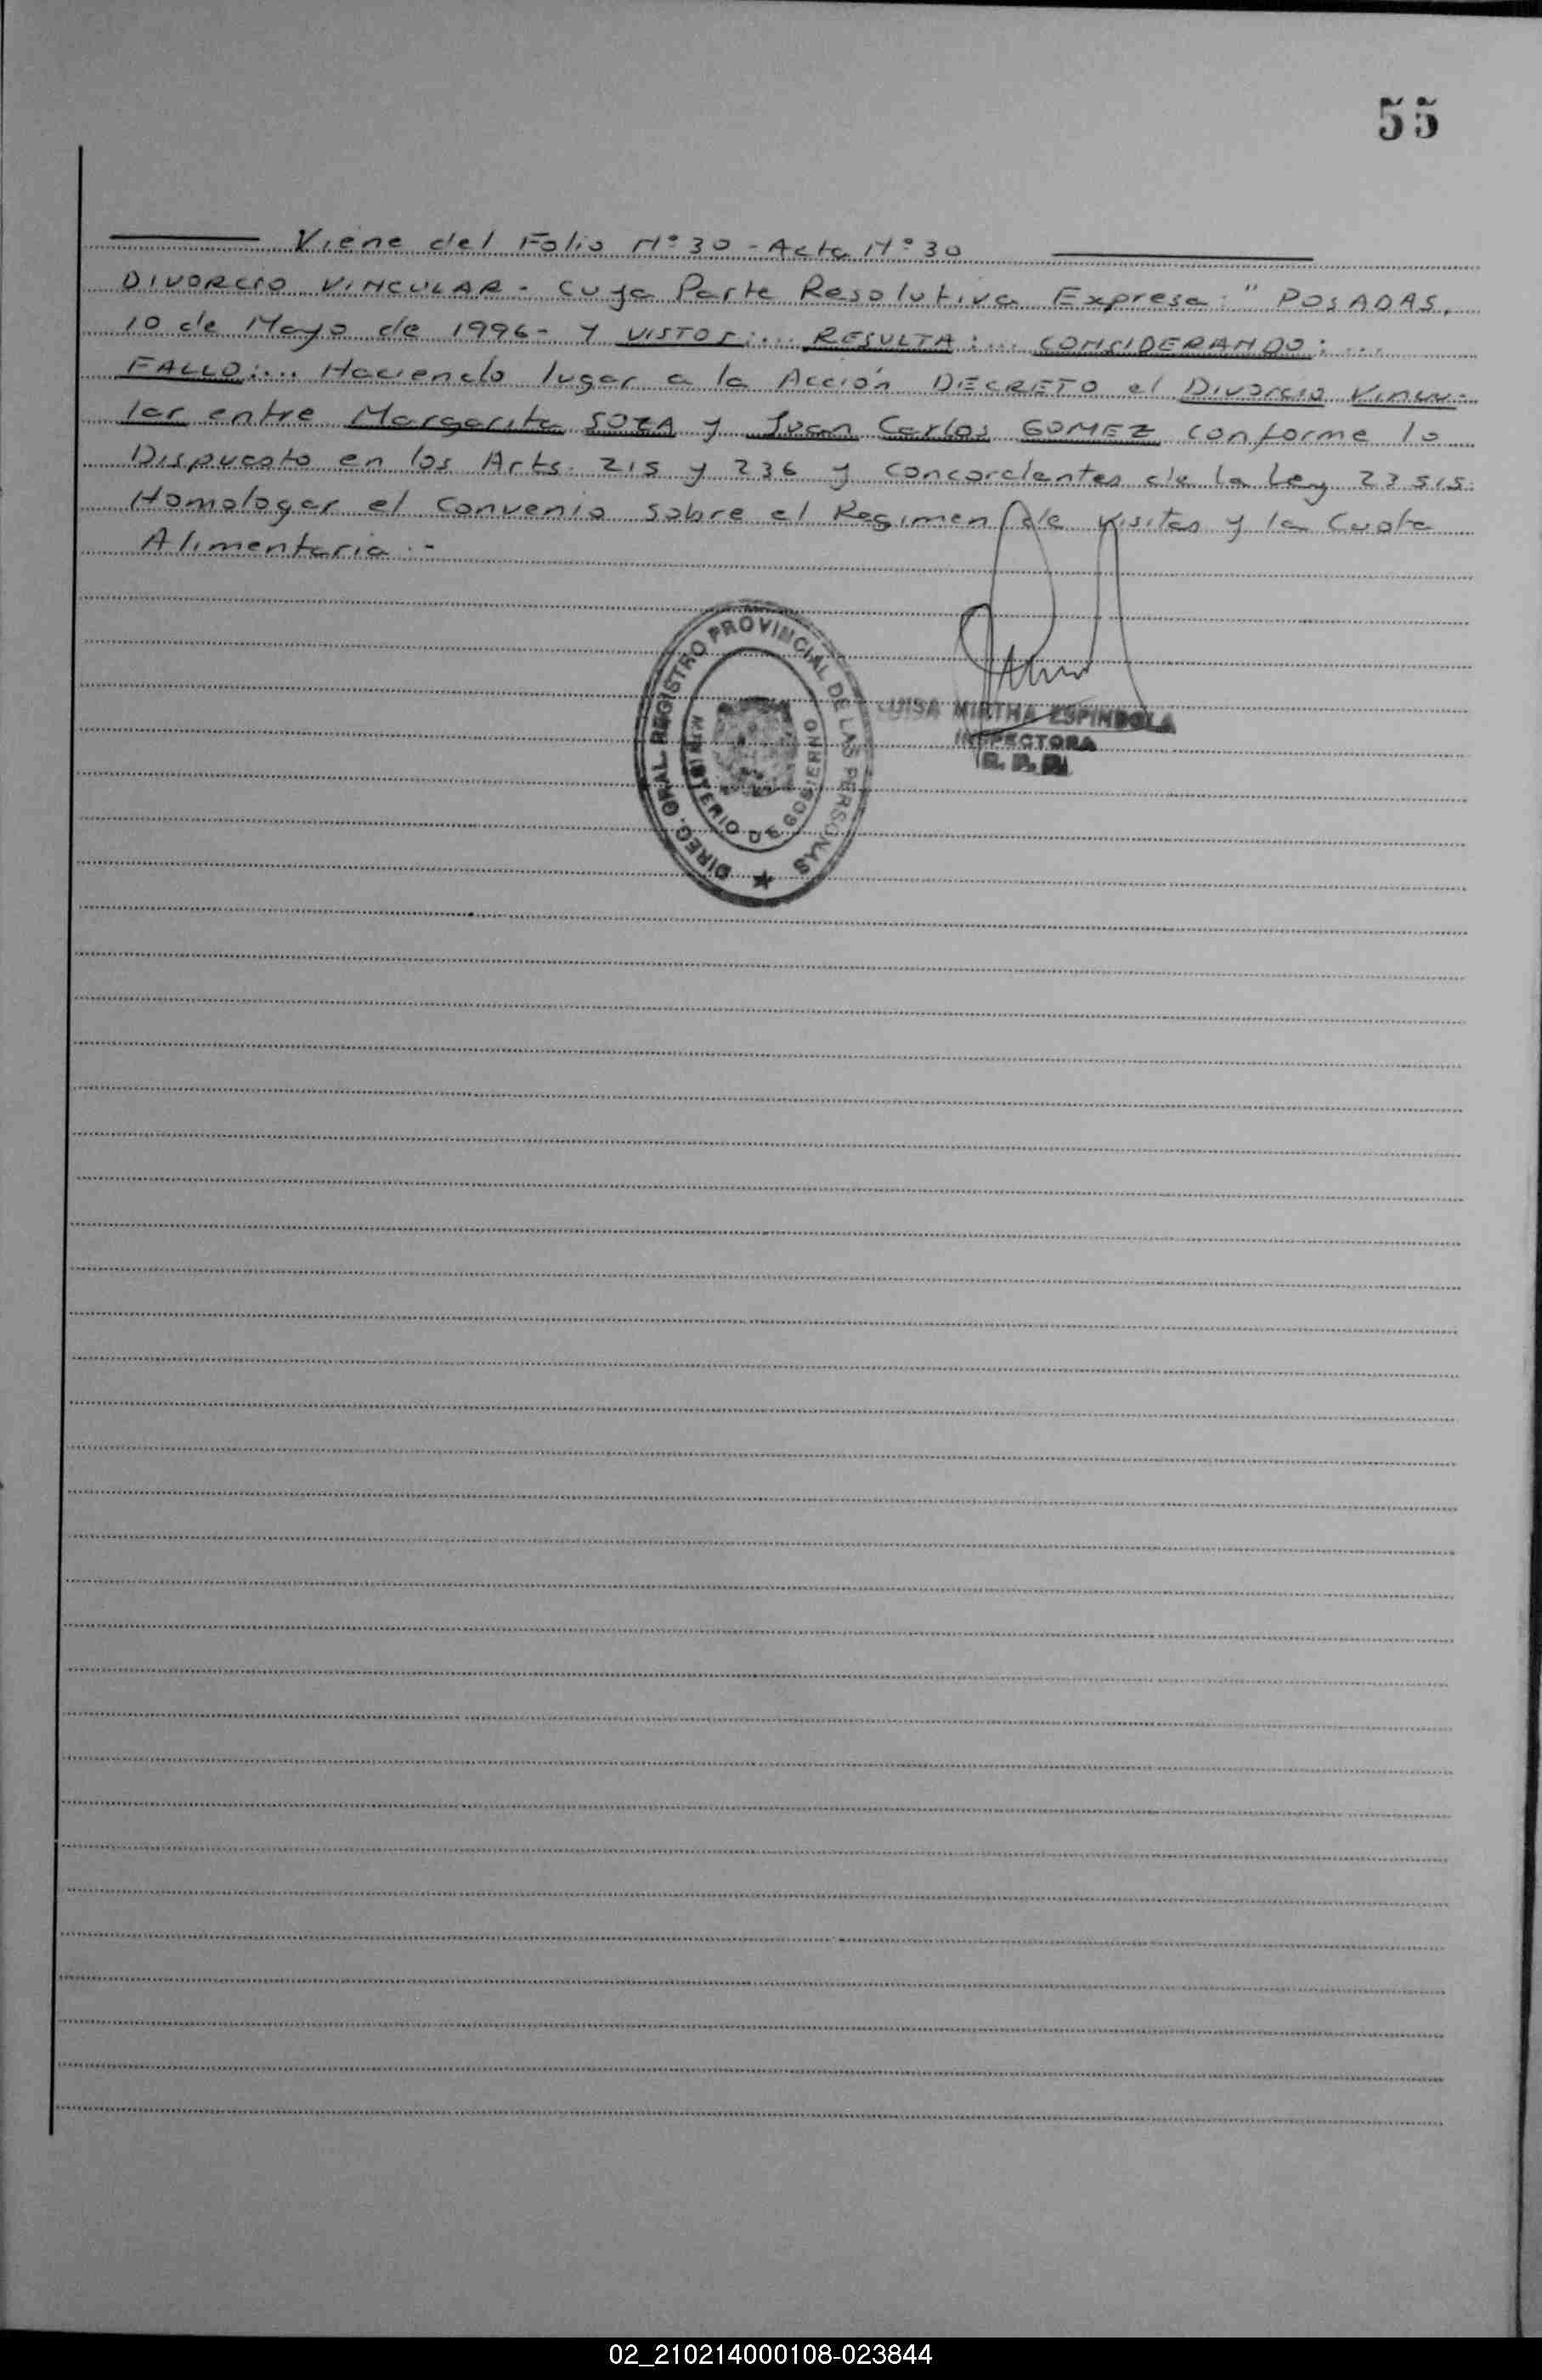 55
Viene del Folio Nº 30 - Acta Nº 30
DIVORCIO VINCULAR - Cuya Parte Resolutiva Expresa: " POSADAS,
10 de Mayo de 1996 - Y VISTOS:... RESULTA:... CONSIDERANDO:...
FALLO:... Haciendo lugar a la Acción DECRETO el Divorcio Vincu-
lar entre Margarita SOZA y Juan Carlos GOMEZ conforme lo
Dispuesto en los Arts. 215 y 236 y concordantes de la Ley 23515.
Homologar el Convenio sobre el Regimen de Visitas y la Cuota
Alimentaria.-
DIREC. GRAL. REGISTRO PROVINCIAL DE LAS PERSONAS
MINISTERIO DE GOBIERNO
LUISA MIRTHA ESPINDOLA
INSPECTORA
R. P. P.
02_210214000108-023844